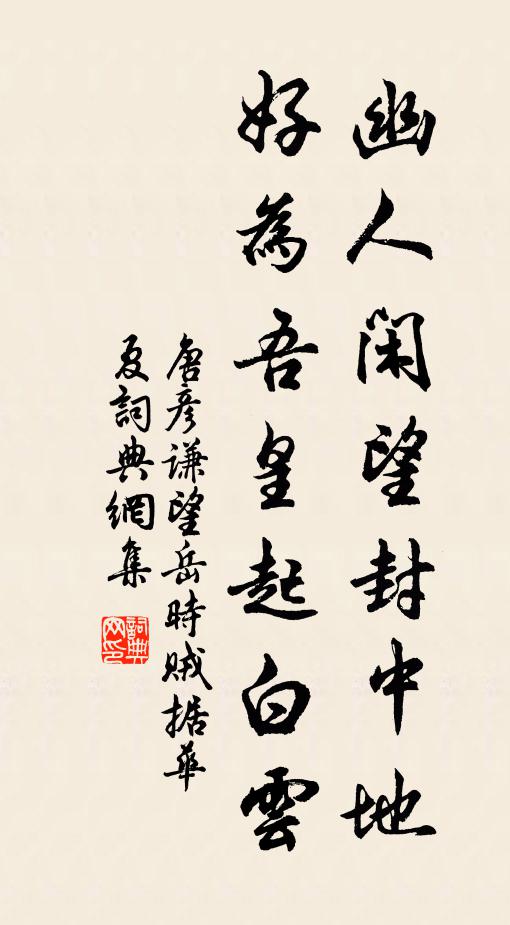 幽人閑望封中地
好為吾皇起白雲
唐彥謙望岳時賊据華
夏詞典網集
詞典
网印